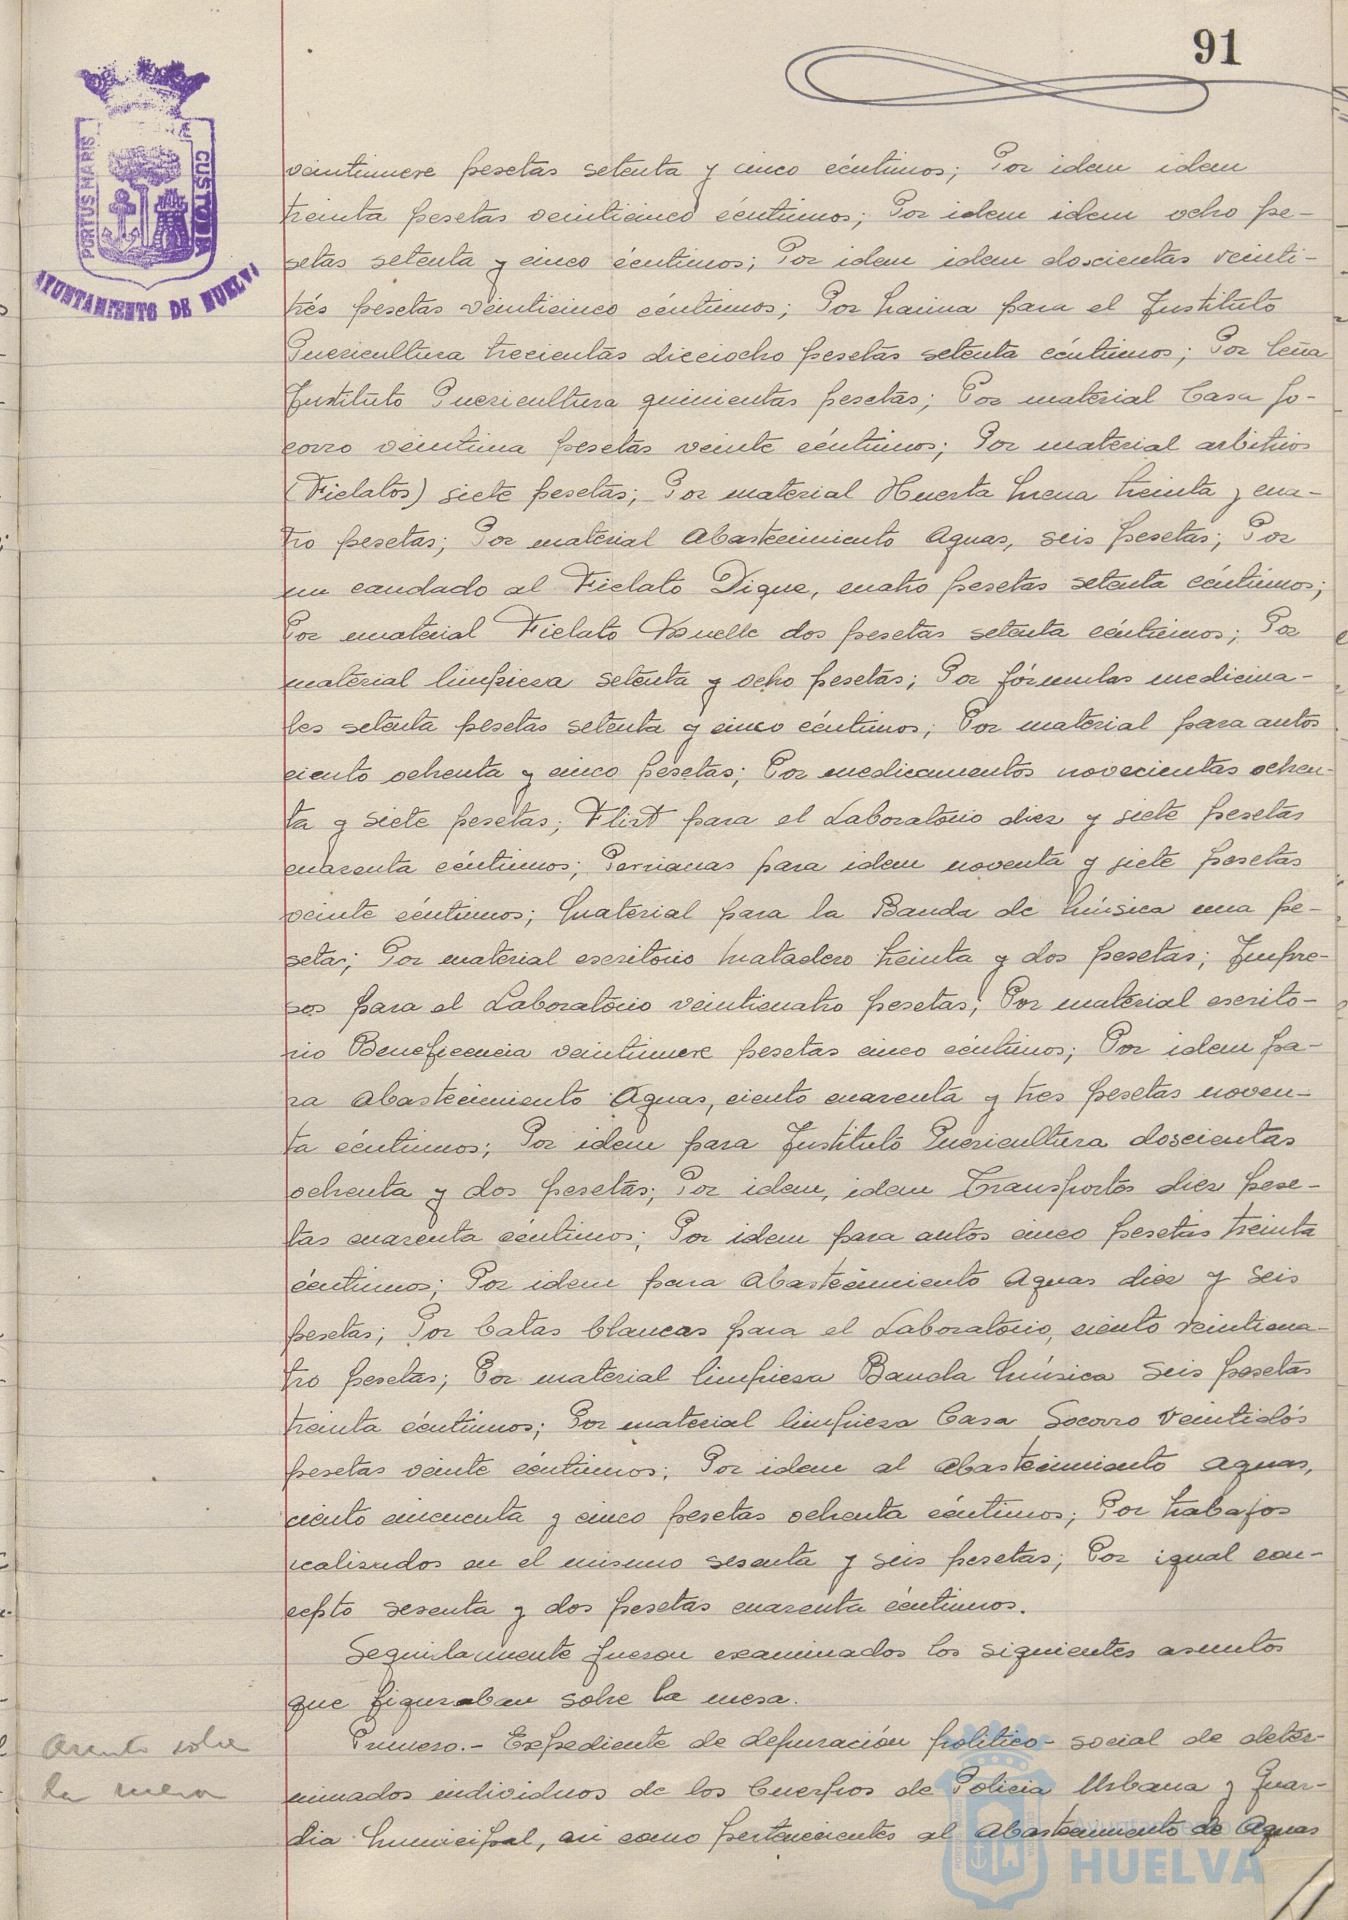 91
PORTUS MARIS
CUSTODIA
AYUNTAMIENTO DE HUELVA
veintinueve pesetas setenta y cinco céntimos; Por idem idem
treinta pesetas veinticinco céntimos; Por idem idem ocho pe-
setas setenta y cinco céntimos; Por idem idem doscientas veinti-
trés pesetas veinticinco céntimos; Por harina para el Instituto
Puericultura trecientas dieciocho pesetas setenta céntimos; Por leña
Instituto Puericultura quinientas pesetas; Por material Casa So-
corro veintiuna pesetas veinte céntimos; Por material arbitrios
(Fielatos) siete pesetas; Por material Huerta Mena treinta y cua-
tro pesetas; Por material Abastecimiento Aguas, seis pesetas; Por
un candado al Fielato Dique, cuatro pesetas setenta céntimos;
Por material Fielato Muelle dos pesetas setenta céntimos; Por
material limpieza setenta y ocho pesetas; Por fórmulas medicina-
les setenta pesetas setenta y cinco céntimos; Por material para autos
ciento ochenta y cinco pesetas; Por medicamentos novecientas ochen-
ta y siete pesetas; Flit para el Laboratorio diez y siete pesetas
cuarenta céntimos; Persianas para idem noventa y siete pesetas
veinte céntimos; Material para la Banda de Música una pe-
seta; Por material escritorio Matadero treinta y dos pesetas; Impre-
sos para el Laboratorio veinticuatro pesetas; Por material escrito-
rio Beneficencia veintinueve pesetas cinco céntimos; Por idem pa-
ra Abastecimiento Aguas, ciento cuarenta y tres pesetas noven-
ta céntimos; Por idem para Instituto Puericultura doscientas
ochenta y dos pesetas; Por idem, idem Transportes diez pese-
tas cuarenta céntimos; Por idem para autos cinco pesetas treinta
céntimos; Por idem para Abastecimiento Aguas diez y seis
pesetas; Por batas blancas para el Laboratorio, ciento veinticua-
tro pesetas; Por material limpieza Banda Música seis pesetas
treinta céntimos; Por material limpieza Casa Socorro veintidós
pesetas veinte céntimos; Por idem al Abastecimiento Aguas,
ciento cincuenta y cinco pesetas ochenta céntimos; Por trabajos
realizados en el mismo sesenta y seis pesetas; Por igual con-
cepto sesenta y dos pesetas cuarenta céntimos.
Seguidamente fueron examinados los siguientes asuntos
que figuraban sobre la mesa.
Asunto sobre
la mesa
Primero.- Expediente de depuración político-social de deter-
minados individuos de los Cuerpos de Policia Urbana y Guar-
dia Municipal, asi como pertenecientes al Abastecimiento de Aguas
HUELVA